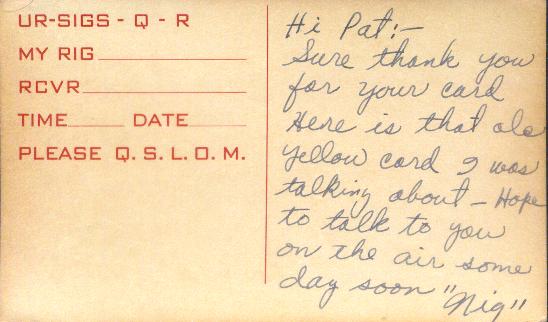 UR-SIGS - Q - R
MY RIG
RCVR
TIME DATE
PLEASE Q. S. L. O. M.
Hi Pat:-
Sure thank you
for your card
Here is that old
yellow card I was
talking about - Hope
to talk to you
on the air some
day soon "Nig"